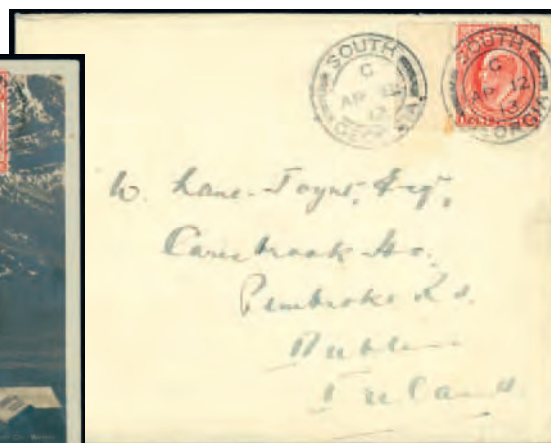 SOUTH
C
AP 12
13
GEORGIA
SOUTH
C
AP 12
13
GEORGIA
W. Lane-Joynt, Esqr,
Carisbrook Ho.
Pembroke Rd.
Dublin
Ireland.